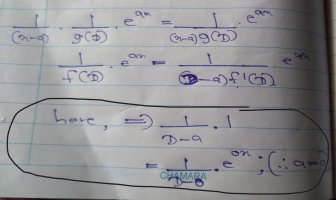 1/(x-a) · 1/g(D) · e^{ax} = 1/((x-a)g(D)) · e^{ax}
1/f(D) · e^{ax} = 1/(-a)f'(D) · e^{ax}
here, ⇒ 1/(D-a) · 1
= 1/(D-0) · e^{0x} ; (∵ a=0)
CHAMARA